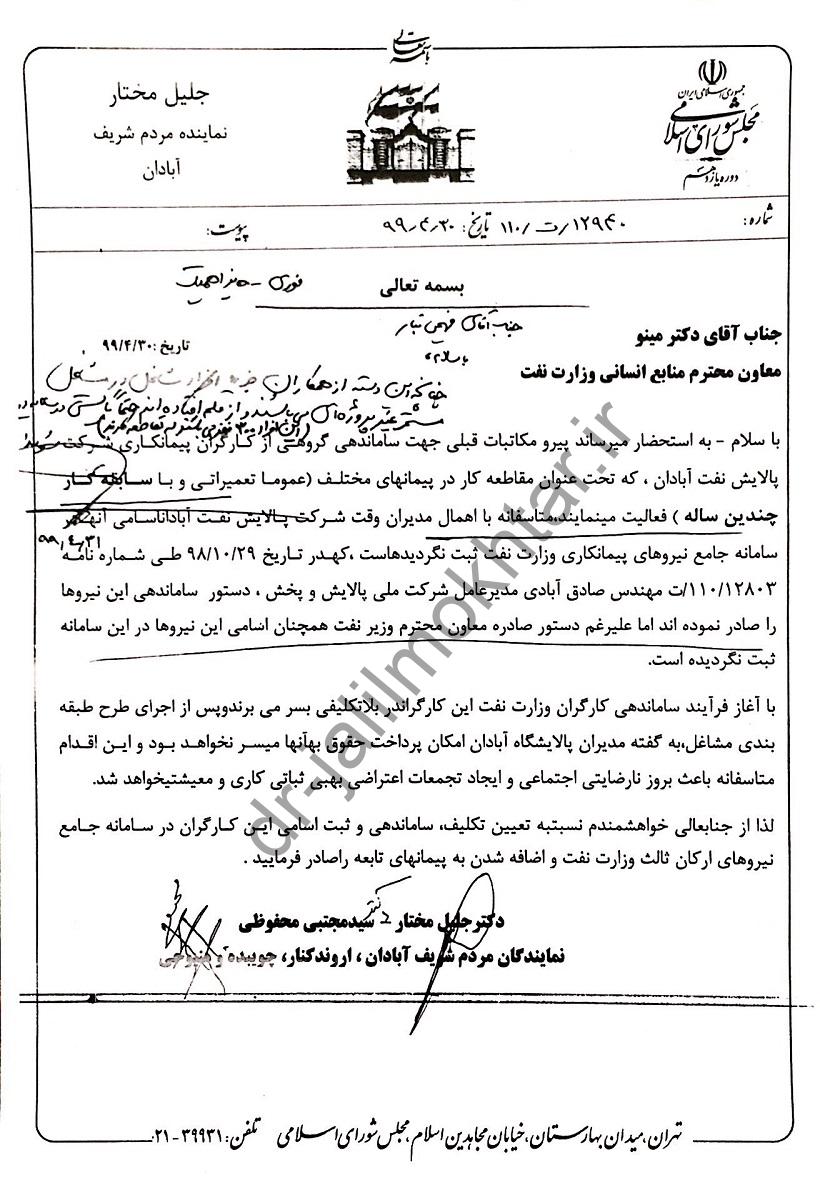 باسمه تعالی
جمهوری اسلامی ایران
مجلس شورای اسلامی
دوره یازدهم
جلیل مختار
نماینده مردم شریف
آبادان
شماره: ۱۲۹۴۰/ت/۱۱۰ تاریخ: ۹۹٫۴٫۳۰ پیوست:
بسمه تعالی
فوری -
جناب آقای فهیمی تبار
باسلام
جناب آقای دکتر مینو
تاریخ: ۹۹/۴/۳۰
معاون محترم منابع انسانی وزارت نفت
این دسته از همکاران جزء افراد شاغل در مشاغل
مستمر غیر پروژه‌ای می باشند و از قلم افتاده اند حتماً بایستی در
با سلام - به استحضار میرساند پیرو مکاتبات قبلی جهت ساماندهی گروهی از کارگران پیمانکاری شرکت
پالایش نفت آبادان ، که تحت عنوان مقاطعه کار در پیمانهای مختلف (عموما تعمیراتی و با سابقه کار
چندین ساله ) فعالیت مینمایند،متاسفانه با اهمال مدیران وقت شرکت پالایش نفت آباداناسامی آنهادر
۹۹٫۴٫۳۱
سامانه جامع نیروهای پیمانکاری وزارت نفت ثبت نگردیدهاست ،کهدر تاریخ ۹۸/۱۰/۲۹ طی شماره نامه
۱۱۰/۱۲۸۰۳/ت مهندس صادق آبادی مدیرعامل شرکت ملی پالایش و پخش ، دستور ساماندهی این نیروها
را صادر نموده اند اما علیرغم دستور صادره معاون محترم وزیر نفت همچنان اسامی این نیروها در این سامانه
ثبت نگردیده است.
با آغاز فرآیند ساماندهی کارگران وزارت نفت این کارگراندر بلاتکلیفی بسر می برندوپس از اجرای طرح طبقه
بندی مشاغل،به گفته مدیران پالایشگاه آبادان امکان پرداخت حقوق بهآنها میسر نخواهد بود و این اقدام
متاسفانه باعث بروز نارضایتی اجتماعی و ایجاد تجمعات اعتراضی بهبی ثباتی کاری و معیشتیخواهد شد.
لذا از جنابعالی خواهشمندم نسبتبه تعیین تکلیف، ساماندهی و ثبت اسامی این کارگران در سامانه جامع
نیروهای ارکان ثالث وزارت نفت و اضافه شدن به پیمانهای تابعه راصادر فرمایید .
دکترجلیل مختار دکتر سیدمجتبی محفوظی
نمایندگان مردم شریف آبادان ، اروندکنار، چویبده و منیوحی
dr-jalilmokhtar.ir
تهران،میدان بهارستان،خیابان مجاهدین اسلام،مجلس شورای اسلامی تلفن: ۳۹۹۳۱-۰۲۱